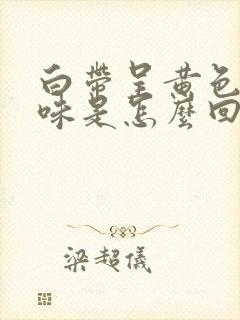 白帶呈黄色
味是怎麼回
梁超儀